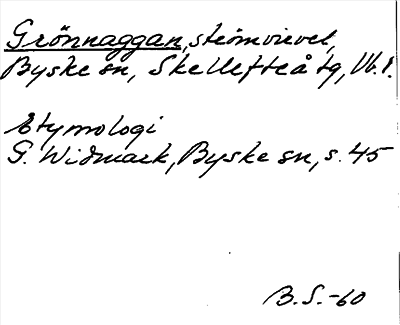 Grönnaggan, strömvirvel,
Byske sn, Skellefteå tg, Vb. l.
Etymologi
G. Widmark, Byske sn, s. 45
B.S.-60